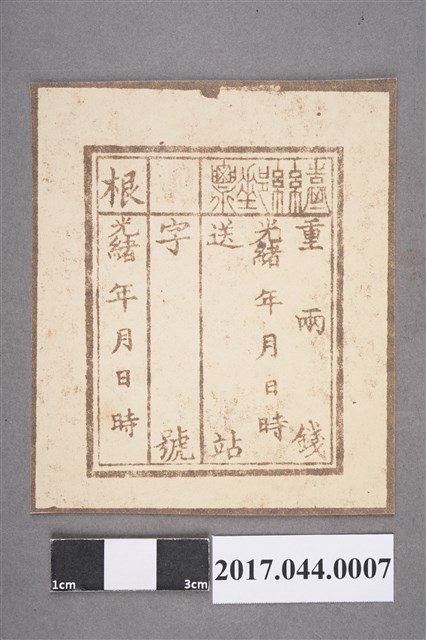 臺灣郵票
重 兩 錢
光緒 年 月 日 時
送 站
字 號
根
光緒 年 月 日 時
1cm 3cm
2017.044.0007